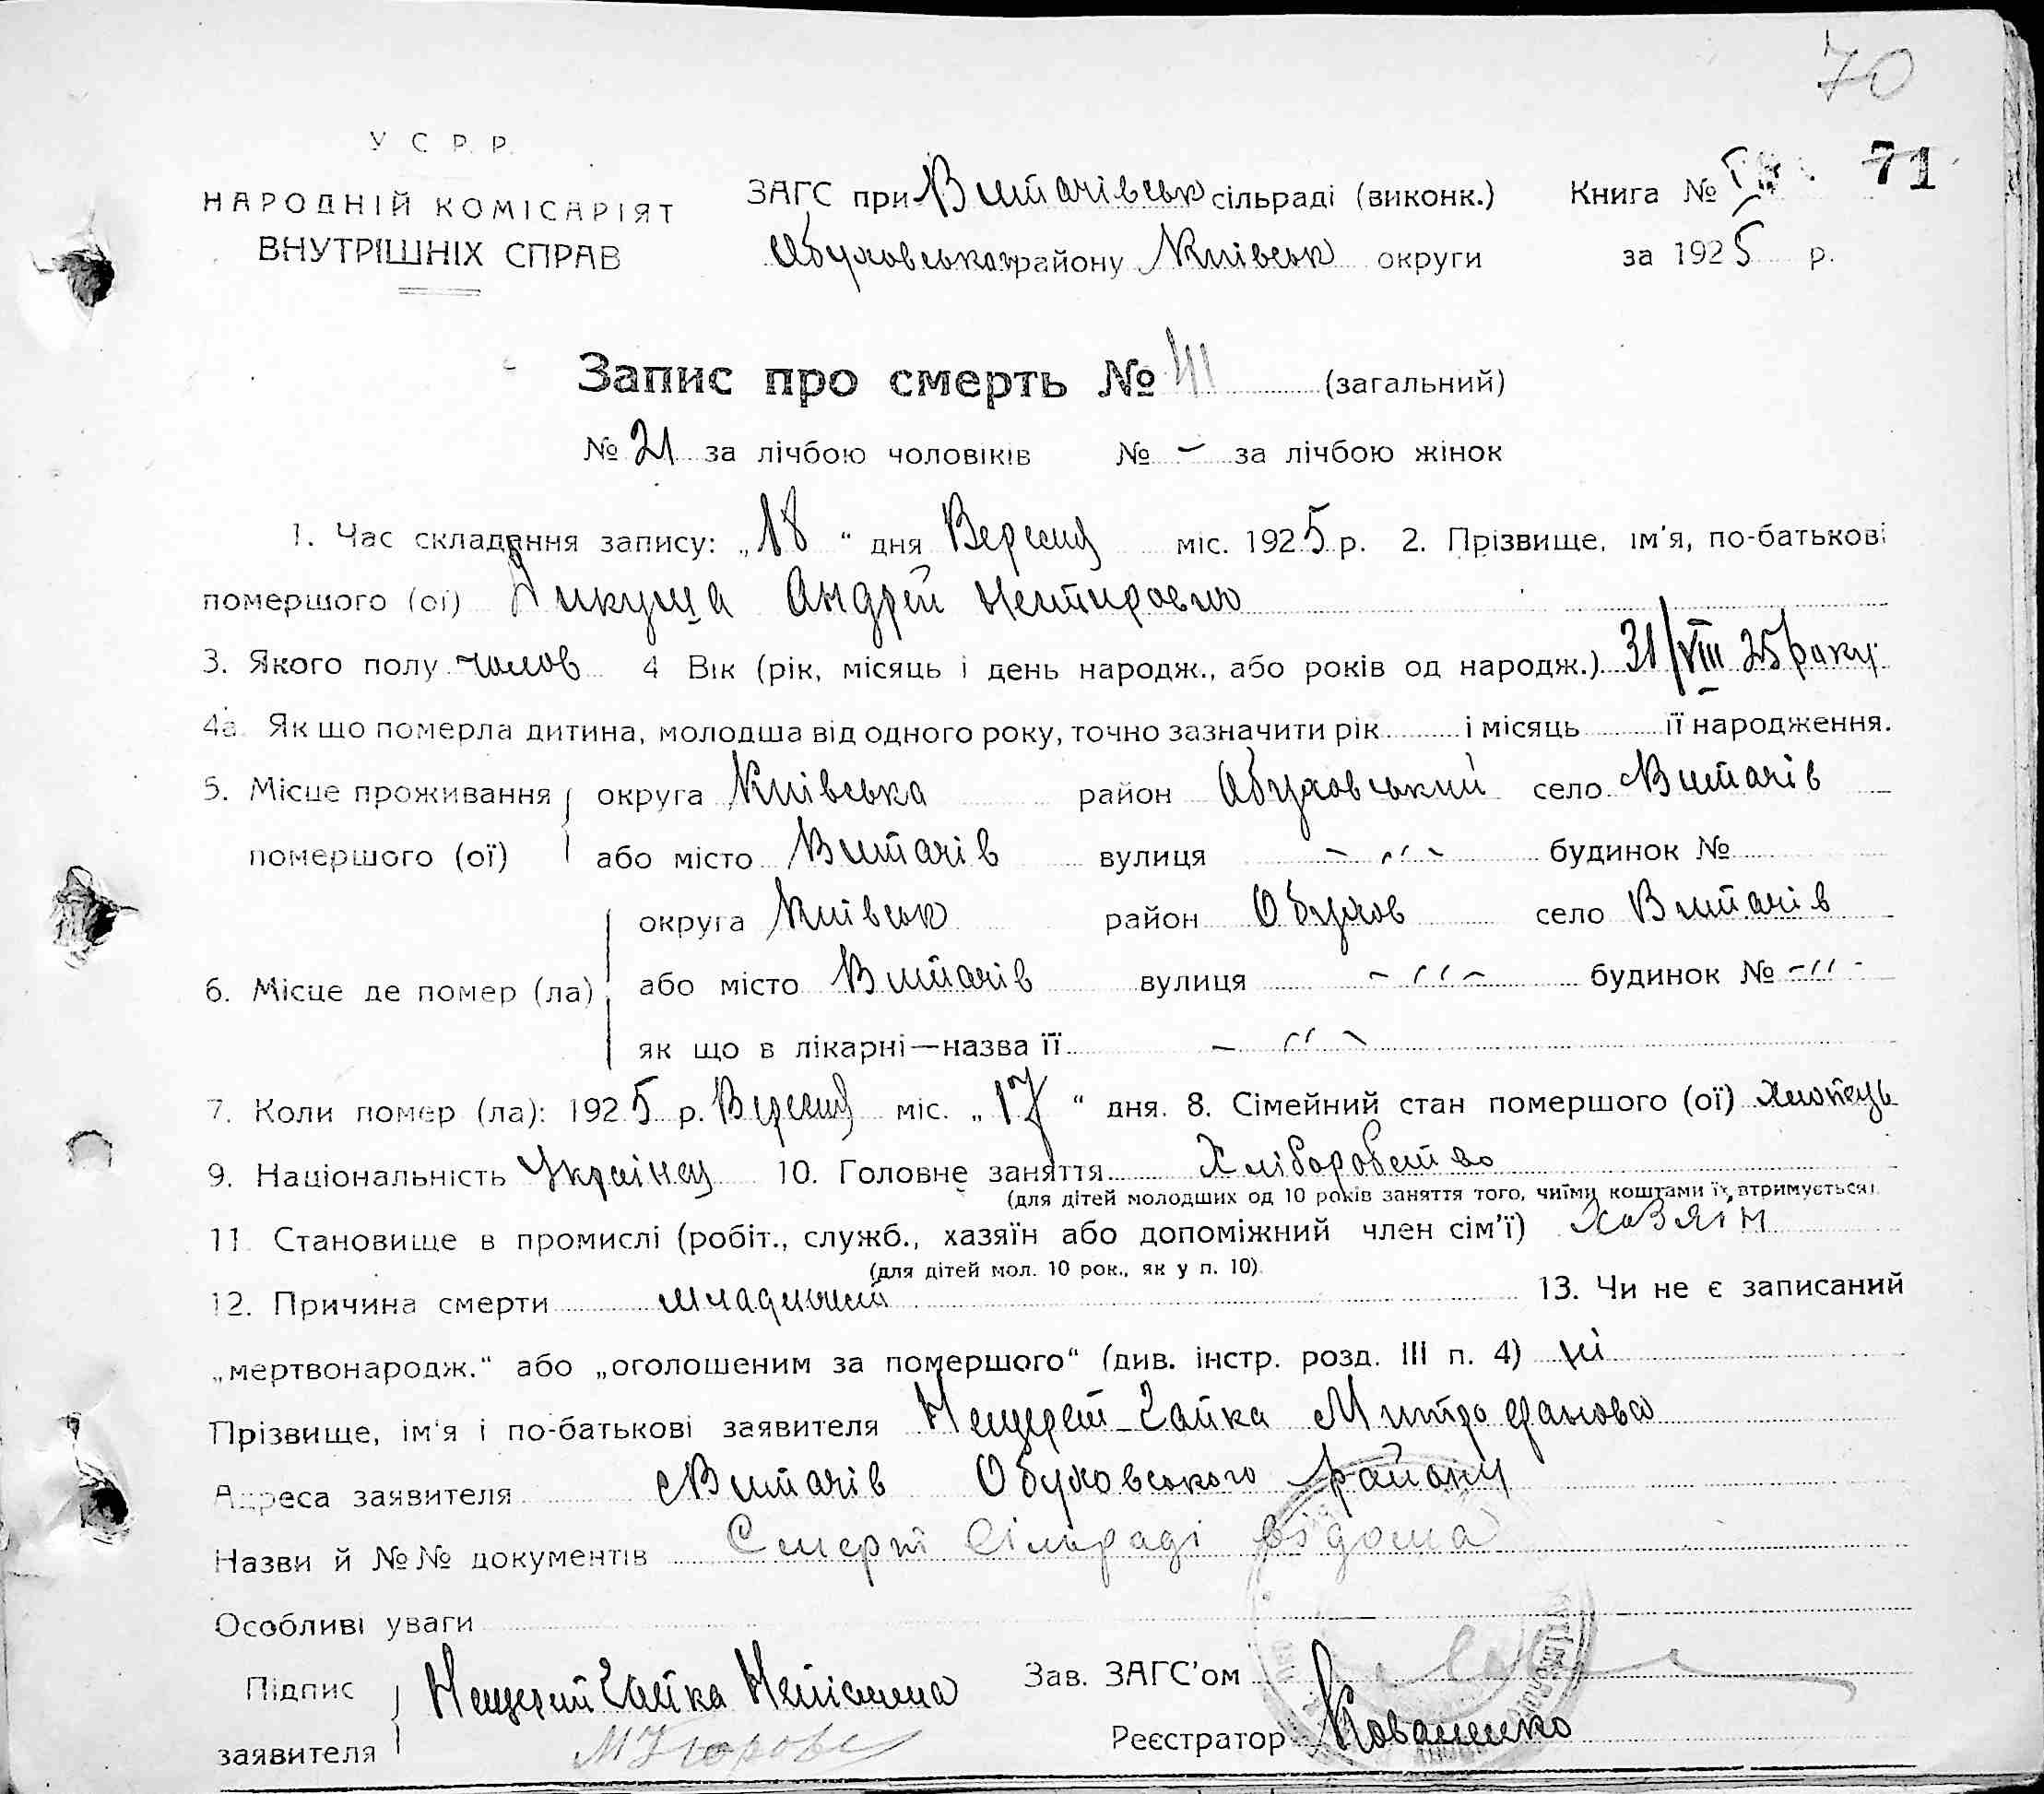 70
71
У С Р Р.
НАРОДНІЙ КОМІСАРІЯТ
ВНУТРІШНІХ СПРАВ
ЗАГС при Витачівськ сільраді (виконк.) Книга №
Обуховського району Київськ округи за 1925 р.
Запис про смерть № 41 (загальний)
№ 21 за лічбою чоловіків № – за лічбою жінок
1. Час складання запису: „18“ дня Вересня міс. 1925 р. 2. Прізвище, ім'я, по-батькові
помершого (ої) Дикуща Андрей
3. Якого полу чолов 4 Вік (рік, місяць і день народж., або років од народж.) 31/VIII 25 року
4а. Як що померла дитина, молодша від одного року, точно зазначити рік і місяць її народження.
5. Місце проживання округа Київська район Обуховський село Витачів
помершого (ої) або місто Витачів вулиця – „ – будинок №
округа Київськ район Обухов село Витачів
6. Місце де помер (ла) або місто Витачів вулиця – „ – будинок № – „ –
як що в лікарні—назва її – „ –
7. Коли помер (ла): 1925 р. Вересня міс. „17“ дня. 8. Сімейний стан помершого (ої) хлопець
9. Національність Українец 10. Головне заняття Хліборобство
(для дітей молодших од 10 років заняття того, чиїми коштами їх втримується)
11. Становище в промислі (робіт., служб., хазяїн або допоміжний член сім'ї) Хазяїн
(для дітей мол. 10 рок., як у п. 10).
12. Причина смерти 13. Чи не є записаний
„мертвонародж.“ або „оголошеним за помершого“ (див. інстр. розд. III п. 4) ні
Прізвище, ім'я і по-батькові заявителя Нещерет Гапка Митрофанова
Адреса заявителя Витачів Обуховського району
Назви й №№ документів Смерть Сільраді відома
Особливі уваги
Підпис Нещерет Гапка Зав. ЗАГС'ом
заявителя Реєстратор Коваленко